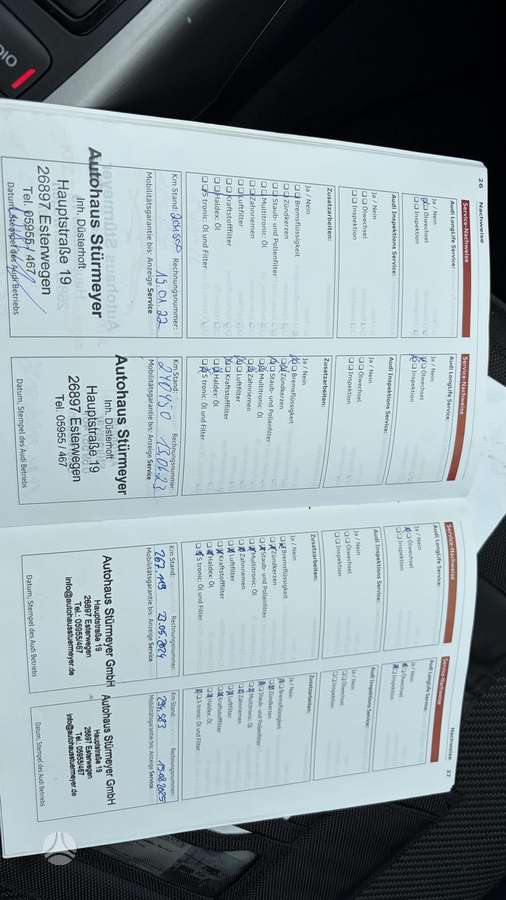 26 Nachweise
Service-Nachweise
Audi LongLife Service:
Ja / Nein
Ölwechsel
Inspektion
Audi Inspektions Service:
Ja / Nein
Ölwechsel
Inspektion
Zusatzarbeiten:
Ja / Nein
Bremsflüssigkeit
Zündkerzen
Staub- und Pollenfilter
Multitronic: Öl
Zahnriemen
Luftfilter
Kraftstofffilter
Haldex: Öl
S tronic: Öl und Filter
Km Stand: Rechnungsnummer:
15.01.22
Mobilitätsgarantie bis: Anzeige Service
Autohaus Stürmeyer
Inh. Düsterhoft
Hauptstraße 19
26897 Esterwegen
Tel. 05955 / 467
Datum, Stempel des Audi Betriebs
Service-Nachweise
Audi LongLife Service:
Ja / Nein
Ölwechsel
Inspektion
Audi Inspektions Service:
Ja / Nein
Ölwechsel
Inspektion
Zusatzarbeiten:
Ja / Nein
Bremsflüssigkeit
Zündkerzen
Staub- und Pollenfilter
Multitronic: Öl
Zahnriemen
Luftfilter
Kraftstofffilter
Haldex: Öl
S tronic: Öl und Filter
Km Stand: Rechnungsnummer:
240450
Mobilitätsgarantie bis: Anzeige Service
Autohaus Stürmeyer
Inh. Düsterhoft
Hauptstraße 19
26897 Esterwegen
Tel. 05955 / 467
Datum, Stempel des Audi Betriebs
Service-Nachweise
Audi LongLife Service:
Ja / Nein
Ölwechsel
Inspektion
Audi Inspektions Service:
Ja / Nein
Ölwechsel
Inspektion
Zusatzarbeiten:
Ja / Nein
Bremsflüssigkeit
Zündkerzen
Staub- und Pollenfilter
Multitronic: Öl
Zahnriemen
Luftfilter
Kraftstofffilter
Haldex: Öl
S tronic: Öl und Filter
Km Stand: Rechnungsnummer:
267.119 23.05.2024
Mobilitätsgarantie bis: Anzeige Service
Autohaus Stürmeyer GmbH
Hauptstraße 19
26897 Esterwegen
Tel.: 05955/467
info@autohausstuermeyer.de
Datum, Stempel des Audi Betriebs
Nachweise 27
Service-Nachweise
Audi LongLife Service:
Ja / Nein
Ölwechsel
Inspektion
Audi Inspektions Service:
Ja / Nein
Ölwechsel
Inspektion
Zusatzarbeiten:
Ja / Nein
Bremsflüssigkeit
Zündkerzen
Staub- und Pollenfilter
Multitronic: Öl
Zahnriemen
Luftfilter
Kraftstofffilter
Haldex: Öl
S tronic: Öl und Filter
Km Stand: Rechnungsnummer:
294.983 19.08.2025
Mobilitätsgarantie bis: Anzeige Service
Autohaus Stürmeyer GmbH
Hauptstraße 19
26897 Esterwegen
Tel.: 05955/467
info@autohausstuermeyer.de
Datum, Stempel des Audi Betriebs